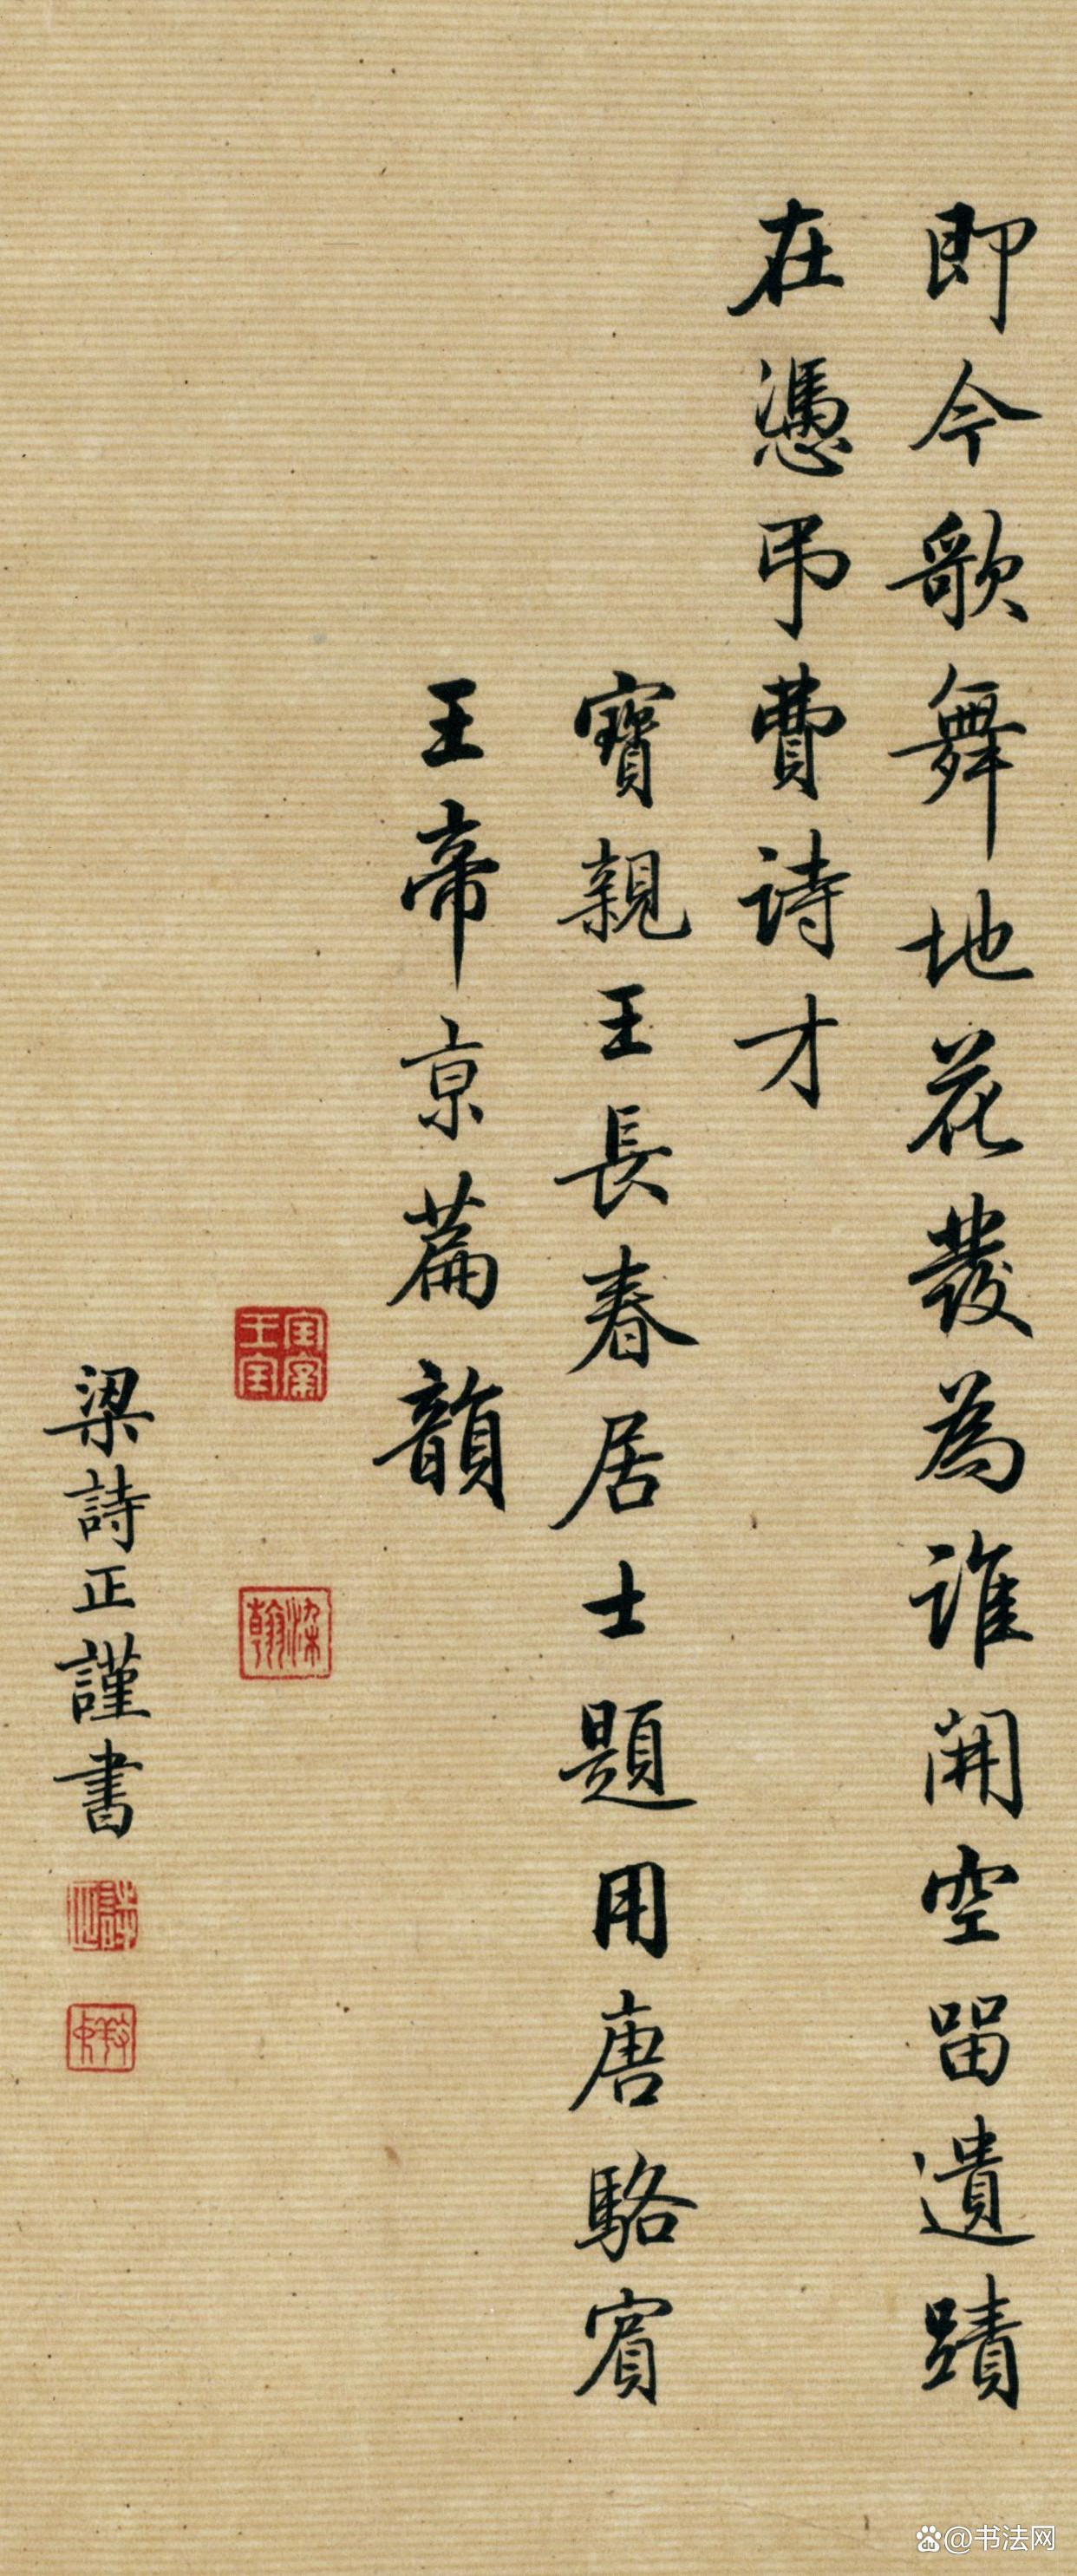 即今歌舞地花發為誰開空留遺蹟
在憑弔費詩才
寶親王長春居士題用唐駱賓
王帝京篇韻
梁詩正謹書
@书法网